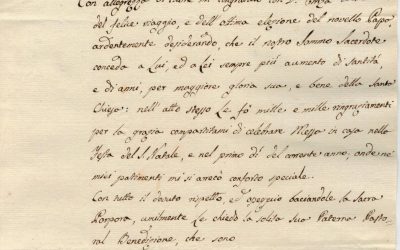 Con allegrezza
del felice viaggio, e dell'ottima elezione del novello Papa,
ardentemente desiderando, che il nostro Sommo Sacerdote
conceda a Lui, ed a Lei sempre più aumento di Santità,
e di anni, per maggiore gloria sua, e bene della Santa
Chiesa: nell'atto stesso Le fò mille e mille ringraziamenti
per la grazia compartitami di celebrare Messa in casa nella
Festa del S. Natale, e nel primo dì del corrente anno, onde ne'
miei patimenti mi si arrecò conforto speciale.
Con tutto il dovuto rispetto, ed ossequio baciandole la Sacra
Porpora, umilmente Le chiedo la solita sua Paterna Pasto-
ral Benedizione, che sono